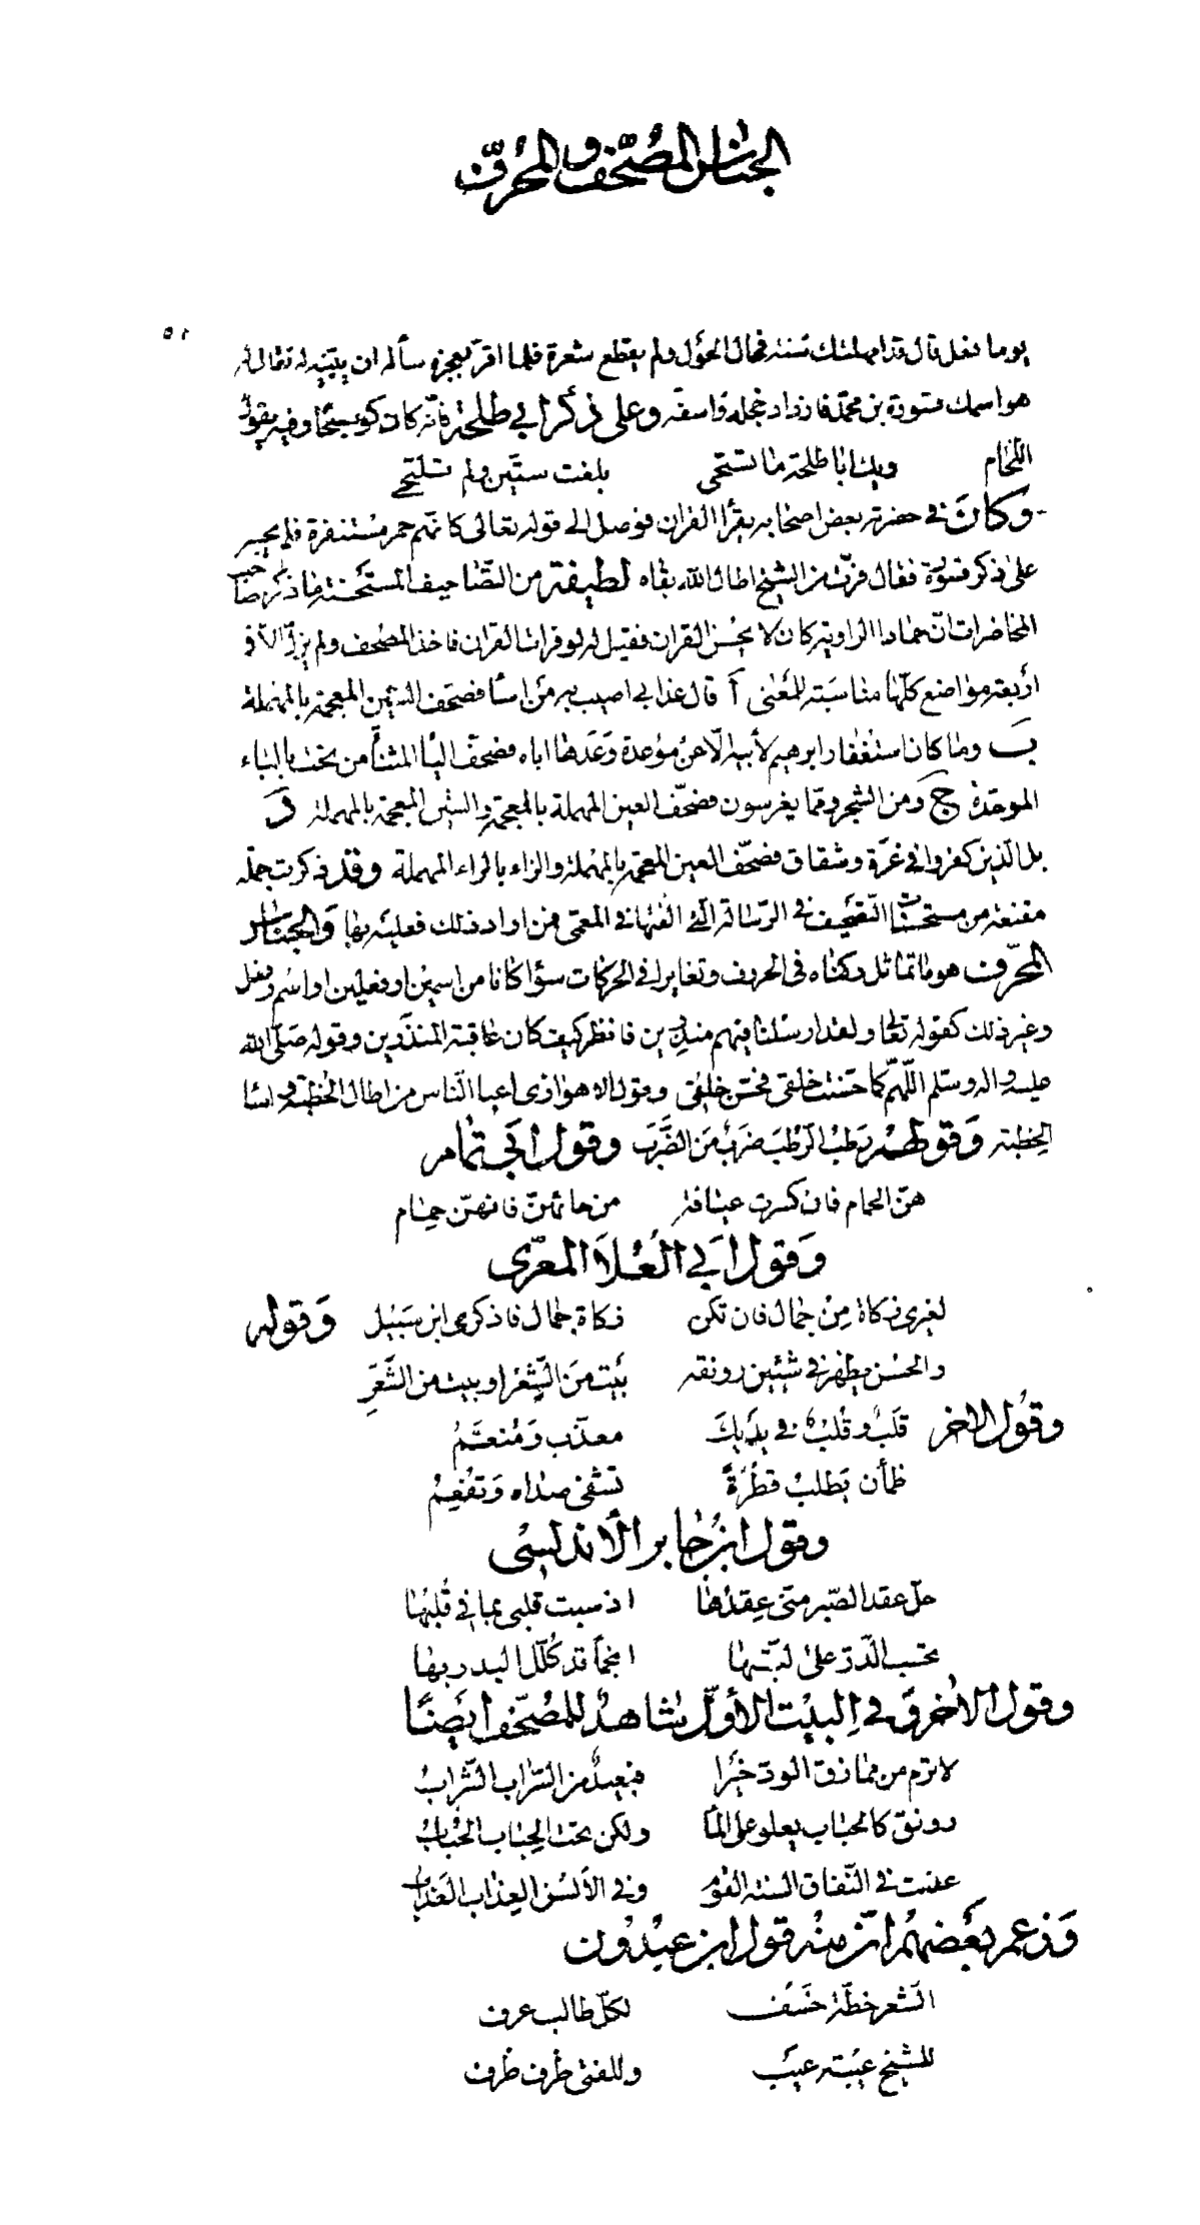 الجناس المصحّف والمحرّف
٥١
يوما نقل قال قد امهلتك سنة فحال الحول ولم يقطع شعرة فلما اقرّ بعجزه سأله ان يبيّنه له فقال له
هو اسمك مسورة بن محمّد فازداد خجله واسفه وعلى ذكر ابي طلحة فانّه كان كوسجا وفيه يقول
اللّحّام ويك ابا طلحة ما تستحى بلغت ستّين ولم تلتحى
وكان في حضرته بعض اصحابه يقرأ القرآن فوصل الى قوله تعالى كانّهم حمر مستنفرة فلم يجسر
على ذكر قسورة فقال فرّت من الشيخ اطال الله بقاه لطيفة من التّصاحيف المستحسنة ما ذكر صاحب
المحاضرات انّ حمادا الراوية كان لا يحسن القرآن فقيل له لو قرات القرآن فاخذ المصحف ولم يزلّ الّا في
اربعة مواضع كلّها مناسبة للمعنى آ قال عذابي اصيب به من اسا فصحّف الشين المعجمة بالمهملة
ب وما كان استغفار ابرهيم لأبيه الّا عن موعدة وعدها اباه فصحّف اليا المثنّاة من تحت بالباء
الموحّدة ج ومن الشجر وممّا يغرسون فصحّف العين المهملة بالمعجمة والشين المعجمة بالمهملة د
بل الّذين كفروا في غرّة وشقاق فصحّف العين المعجمة بالمهملة والزاء بالراء المهملة وقد ذكرت جملة
مقنعة من مستحسنات التّصحيف في الرّسالة الّتي الّفتها في المعمّى فمن اراد ذلك فعليه بها والجناس
المحرّف هو ما تماثل ركناه في الحروف وتغايرا في الحركات سوآ كانا من اسمين او فعلين او اسم وفعل
وغير ذلك كقوله تعالى ولقد ارسلنا فيهم منذرين فانظر كيف كان عاقبة المنذرين وقوله صلّى الله
عليه واله وسلم اللّهمّ كما حسّنت خلقي فحسّن خلقي وقول الاهوازى اعبا النّاس من اطال الخطبة واسا
الخطبة وقولهم رطب الرّطب ضرب من الضّرب وقول ابي تمام
هنّ الحمام فان كسرت عيافة من حائهنّ فانهنّ حمام
وقول ابي العلا المعرّى
لغيرى زكاة من جمال فان تكن زكاة جمال فاذكرى ابن سبيل وقوله
والحسن يظهر في شيئين رونقه بيت من الشّعر او بيت من الشّعر
وقول الاخر قلب وقلب في يديك معذّب ومنعّم
ظمآن يطلب قطرة تشفى صداه وتفعم
وقول ابن جابر الأندلسي
حلّ عقد الصّبر منّى عقدها اذ سبت قلبى بما في قلبها
تحسب الدّرّ على لبّتها انجما قد كلّل البدر بها
وقول الاخر وفي البيت الأول شاهد للمصحّف ايضا
لا ترم من مماذق الودّ خيرا فبعيد من السّراب الشّراب
رونق كالحباب يعلو على المآ ولكن تحت الحباب الحباب
عذبت في النّفاق السنة القوم وفي الألسن العذاب العذاب
وزعم بعضهم انّ منه قول ابن عبدون
الشعر خطّة خسف لكلّ طالب عرف
للشيخ عيبة عيب وللفتى ظرف ظرف